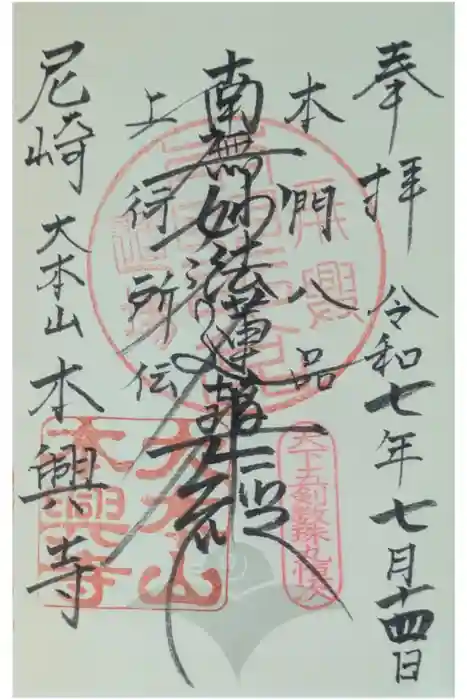 奉拝 令和七年七月十四日
本門八品
南無妙法蓮華経
上行所伝
尼崎 大本山 本興寺
大本山
本興寺
天下五剣数珠丸恒次